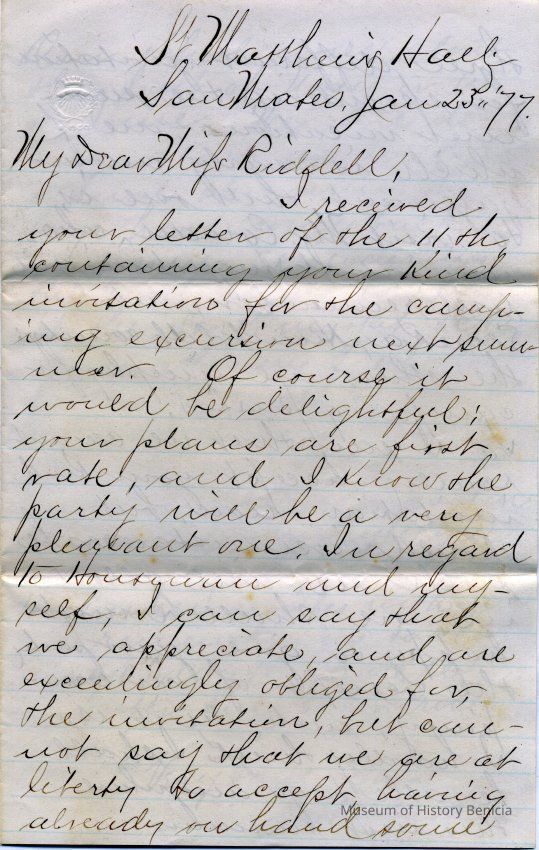 St. Matthew's Hall,
San Mateo, Jan 23", '77.
My Dear Miss Riddell,
I received
your letter of the 11th,
containing your kind
invitation for the camp-
ing excursion next sum-
mer. Of course it
would be delightful;
your plans are first
rate, and I know the
party will be a very
pleasant one. In regard
to and my-
self, I can say that
we appreciate, and are
exceedingly obliged for,
the invitation, but can-
not say that we are at
liberty to accept, having
already on hand some
Museum of History Benicia